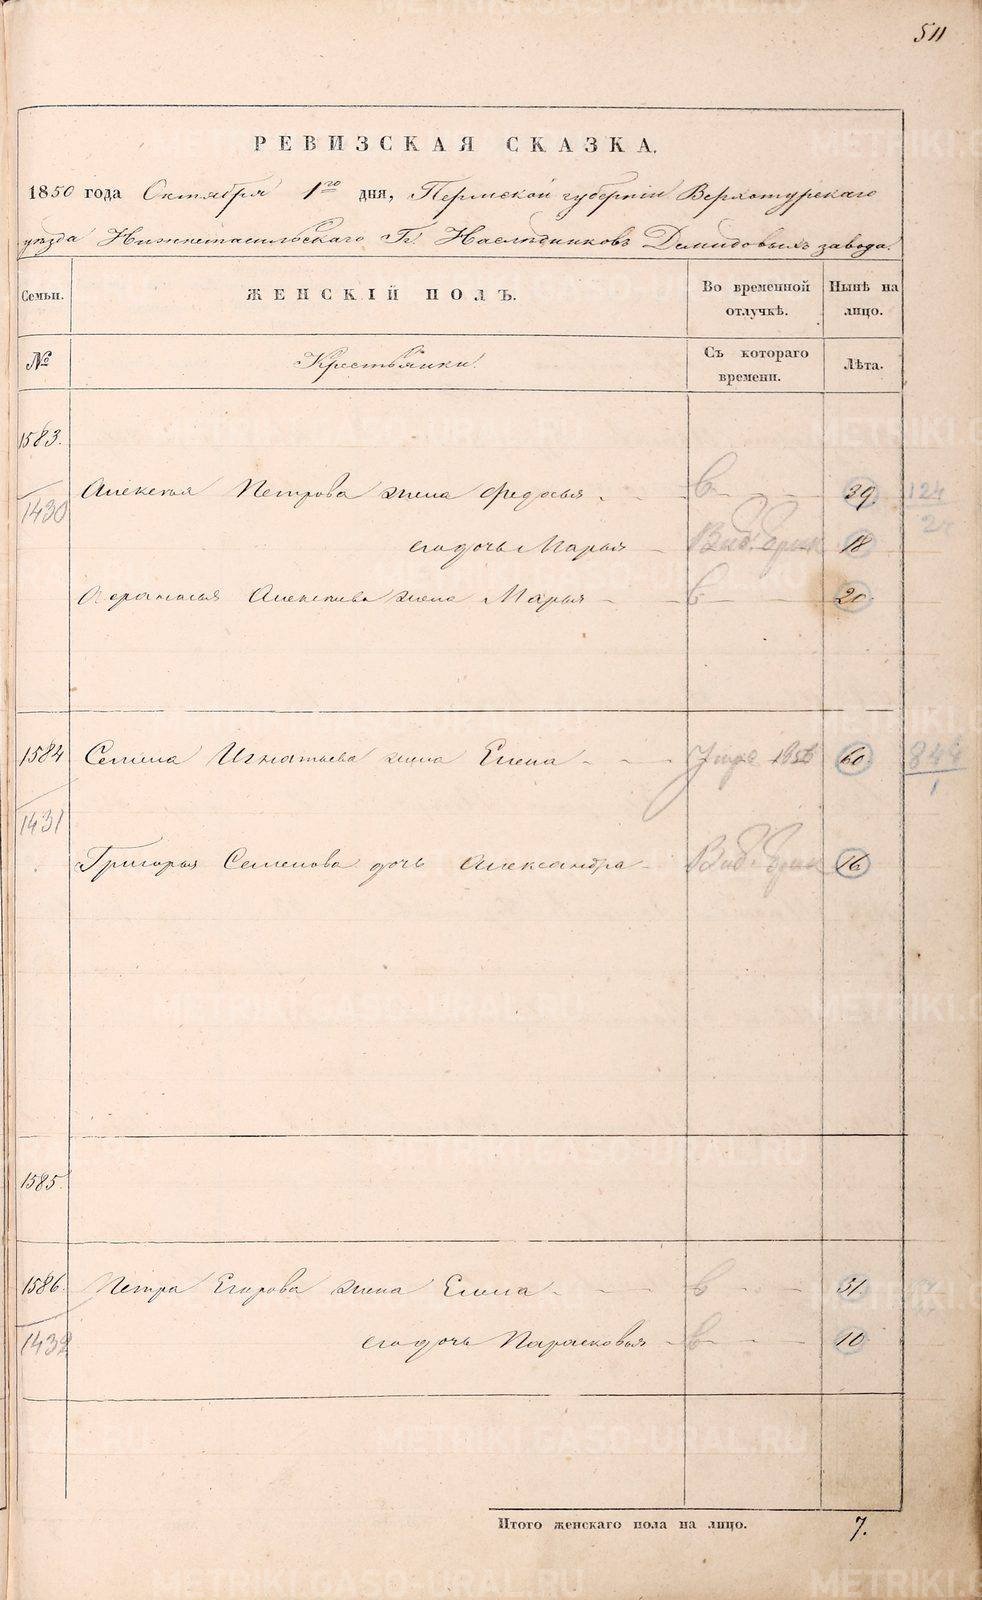 511
РЕВИЗСКАЯ СКАЗКА.
1850 года Октября 1го дня, Пермской губернiи Верхотурскаго
уѣзда Нижнетагильскаго Гг. Наслѣдниковъ Демидовыхъ завода.
Семьи. ЖЕНСКІЙ ПОЛЪ. Во временной отлучкѣ. Нынѣ на лицо.
№ Крестьянки. Съ котораго времени. Лѣта.
1583.
Алексѣя Петрова жена Федосья 39. 124
1430
его дочь Марья 18
Афанасья Алексѣева жена Марья 20.
1584 Семена Игнатьева жена Елена Умре 1856 60. 844
1
1431
Григорья Семенова дочь Александра 16
1585.
1586. Петра Егорова жена Елена 51.
1432 его дочь Парасковья 10
Итого женскаго пола на лицо. 7.
METRIKI.GASO-URAL.RU